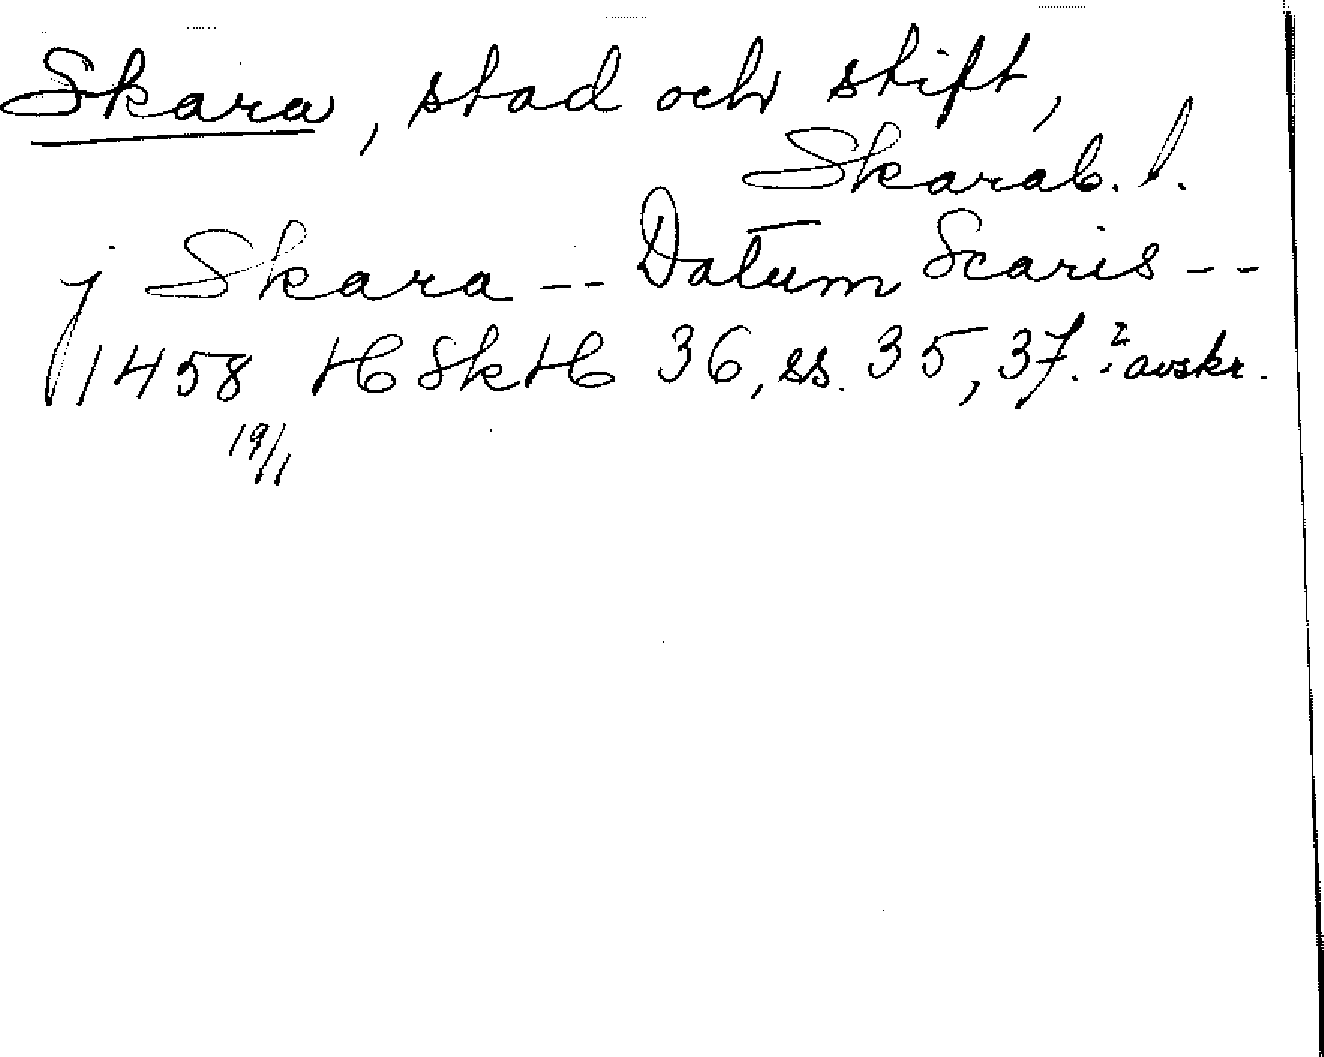 Skara, stad och stift,
Skarab. l.
j Skara -- Datum Scaris --
1458 HSkH 36, ss. 35, 37. avskr.
19/1